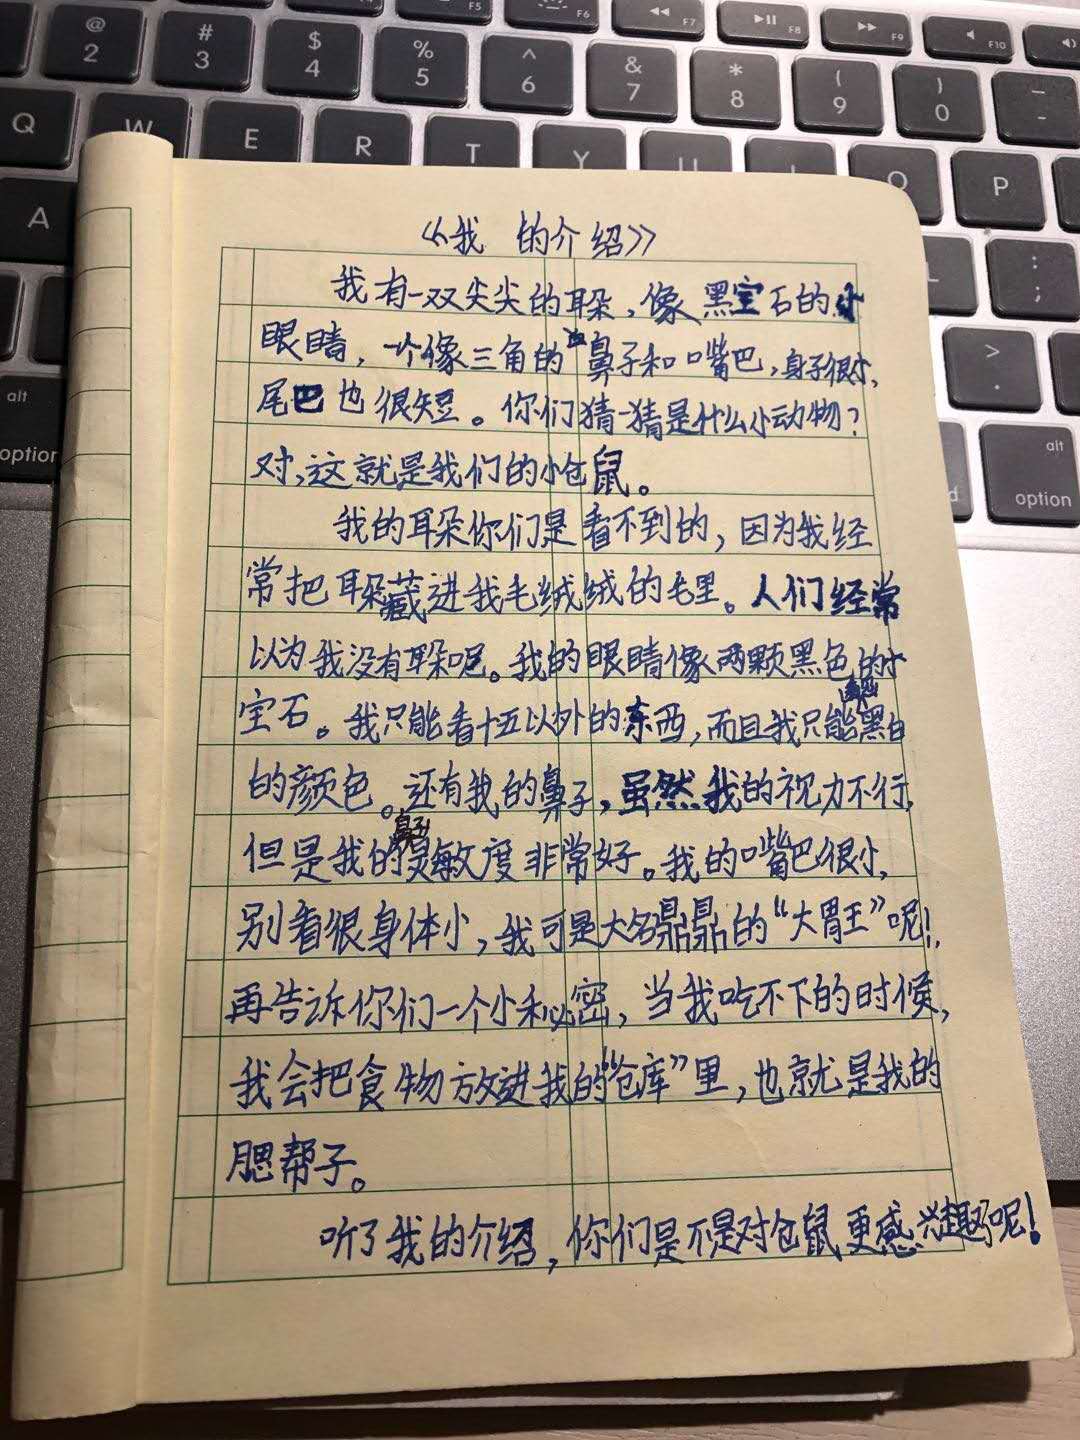 @ # $ % ^ & * ( ) _
2 3 4 5 6 7 8 9 0 -
F5 F6 F7 F8 F9 F10
Q W E R T Y U O P
A L : ;
> .
alt alt
option option
《我 的介绍》
我有一双尖尖的耳朵,像黑宝石的小
眼睛,一个像三角的鼻子和嘴巴,身子很小,
尾巴也很短。你们猜一猜是什么小动物?
对,这就是我们的小仓鼠。
我的耳朵你们是看不到的,因为我经
常把耳朵藏进我毛绒绒的毛里。人们经常
以为我没有耳朵呢。我的眼睛像两颗黑色的小
宝石。我只能看十五以外的东西,而且我只能黑白
的颜色。还有我的鼻子,虽然我的视力不行,
但是我的鼻子灵敏度非常好。我的嘴巴很小,
别看很身体小,我可是大名鼎鼎的“大胃王”呢!
再告诉你们一个小秘密,当我吃不下的时候,
我会把食物放进我的“仓库”里,也就是我的
腮帮子。
听了我的介绍,你们是不是对仓鼠更感兴趣了呢!